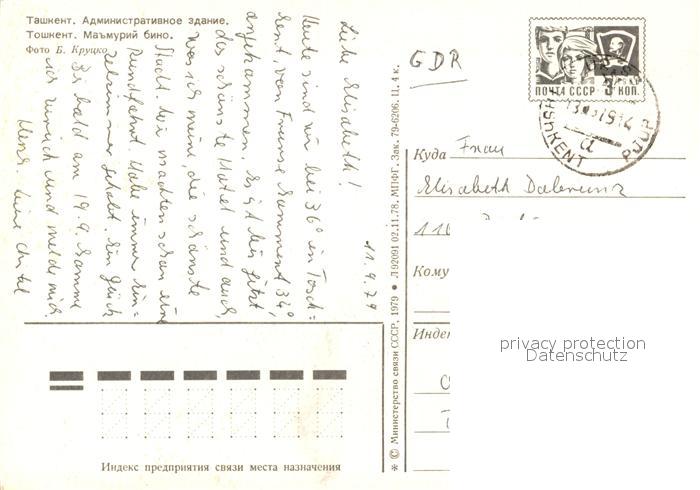 Ташкент. Административное здание.
Тошкент. Маъмурий бино.
Фото Б. Круцко
11.9.79
Liebe Elisabeth!
Heute sind wir bei 36° in Tasch=
kent, von Frunse kommend 34°,
angekommen. Es ist hier jetzt
das schönste Hotel und auch,
was ich meine, die schönste
Stadt. Wir machten schon eine
Rundfahrt. Habe immer Ein=
zelzimmer gehabt. Ein Glück
Bis bald am 19.9. komme
ich zurück und melde mich.
Herzl. Deine
GDR
ПОЧТА СССР КОП.
TASHKENT
a
PJUP
Куда Frau
Elisabeth
11
Кому
Индекс предприятия связи места назначения
* © Министерство связи СССР, 1979 • Л 92091 02.11.78. МПФГ. Зак. 79-6206. П. 4 к.
privacy protection
Datenschutz